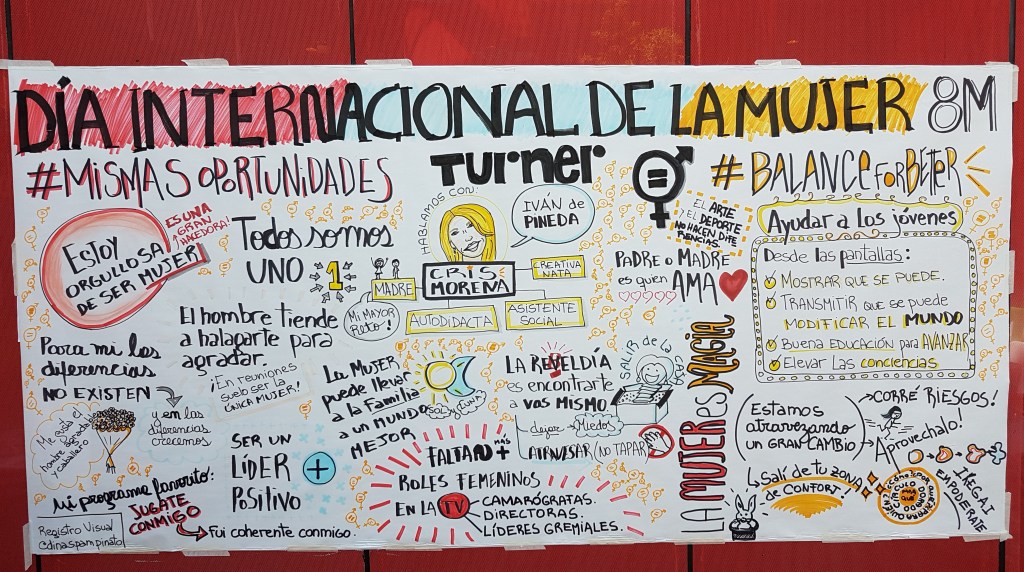 DÍA INTERNACIONAL DE LA MUJER 8M
#MISMAS OPORTUNIDADES
TURNER
#BALANCEFORBETTER
ESTOY
ORGULLOSA
DE SER MUJER!
ES UNA
GRAN
HACEDORA!
Todos somos
UNO
1
El hombre tiende
a halagarte para
agradar.
¡En reuniones
suelo ser la
ÚNICA MUJER!
Para mi las
diferencias
NO EXISTEN
y en las
diferencias
crecemos
Me gusta el
hombre
y caballero
Mi programa favorito:
JUGATE
CONMIGO
Fui coherente conmigo.
Registro Visual
@dinaspampinato
SER UN
LÍDER
POSITIVO
+
HABLAMOS CON:
IVÁN de
PINEDA
CRIS
MORENA
MADRE
Mi MAYOR
CREATIVA
NATA
AUTODIDACTA
ASISTENTE
SOCIAL
La MUJER
puede llevar
a la Familia
a un MUNDO
MEJOR
SOL y LUNA
LA REBELDÍA
es encontrarte
a vos MISMO
dejar Miedos
ATRAVESAR (NO TAPAR)
SALIR de la
CAJA
FALTAN MÁS +
ROLES FEMENINOS
EN LA TV
CAMARÓGRAFAS.
DIRECTORAS.
LÍDERES GREMIALES.
EL ARTE
y EL DEPORTE
NO HACEN DIFE
RENCIAS
PADRE o MADRE
es quien AMA
LA MUJER es MAGIA
Ayudar a los jóvenes
Desde las pantallas:
MOSTRAR QUE SE PUEDE.
TRANSMITIR que se puede
MODIFICAR EL MUNDO
BUENA EDUCACIÓN para AVANZAR
Elevar Las conciencias
(Estamos
atravezando
un GRAN CAMBIO)
CORRÉ RIESGOS!
Aprovechalo!
Salí de tu ZONA
de CONFORT!
EMPODERATE